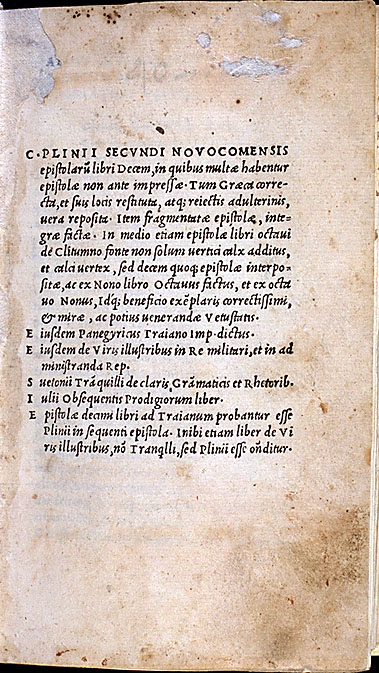 C·PLINII SECVNDI NOVOCOMENSIS
epistolarū libri Decem, in quibus multæ habentur
epistolæ non ante impressæ· Tum Græca corre-
cta, et suis locis restituta, atq; reiectis adulterinis,
uera reposita· Item fragmentatæ epistolæ, inte-
græ factæ· In medio etiam epistolæ libri octaui
de Clitumno fonte non solum uertici calx additus,
et calci uertex, sed decem quoq; epistolæ interpo-
sitæ, ac ex Nono libro Octauus factus, et ex octa
uo Nonus, Idq; beneficio exēplaris correctissimi,
& miræ, ac potius uenerandæ Vetustatis·
E iusdem Panegyricus Traiano Imp·dictus·
E iusdem de Viris illustribus in Re militari, et in ad
ministranda Rep·
S uetonii Trāquilli de claris Grāmaticis et Rhetorib·
I ulii Obsequentis Prodigiorum liber·
E pistolæ decimi libri ad Traianum probantur esse
Plinii in sequenti epistola· Inibi etiam liber de Vi
ris illustribus, nō Tranqlli, sed Plinii esse oñditur·